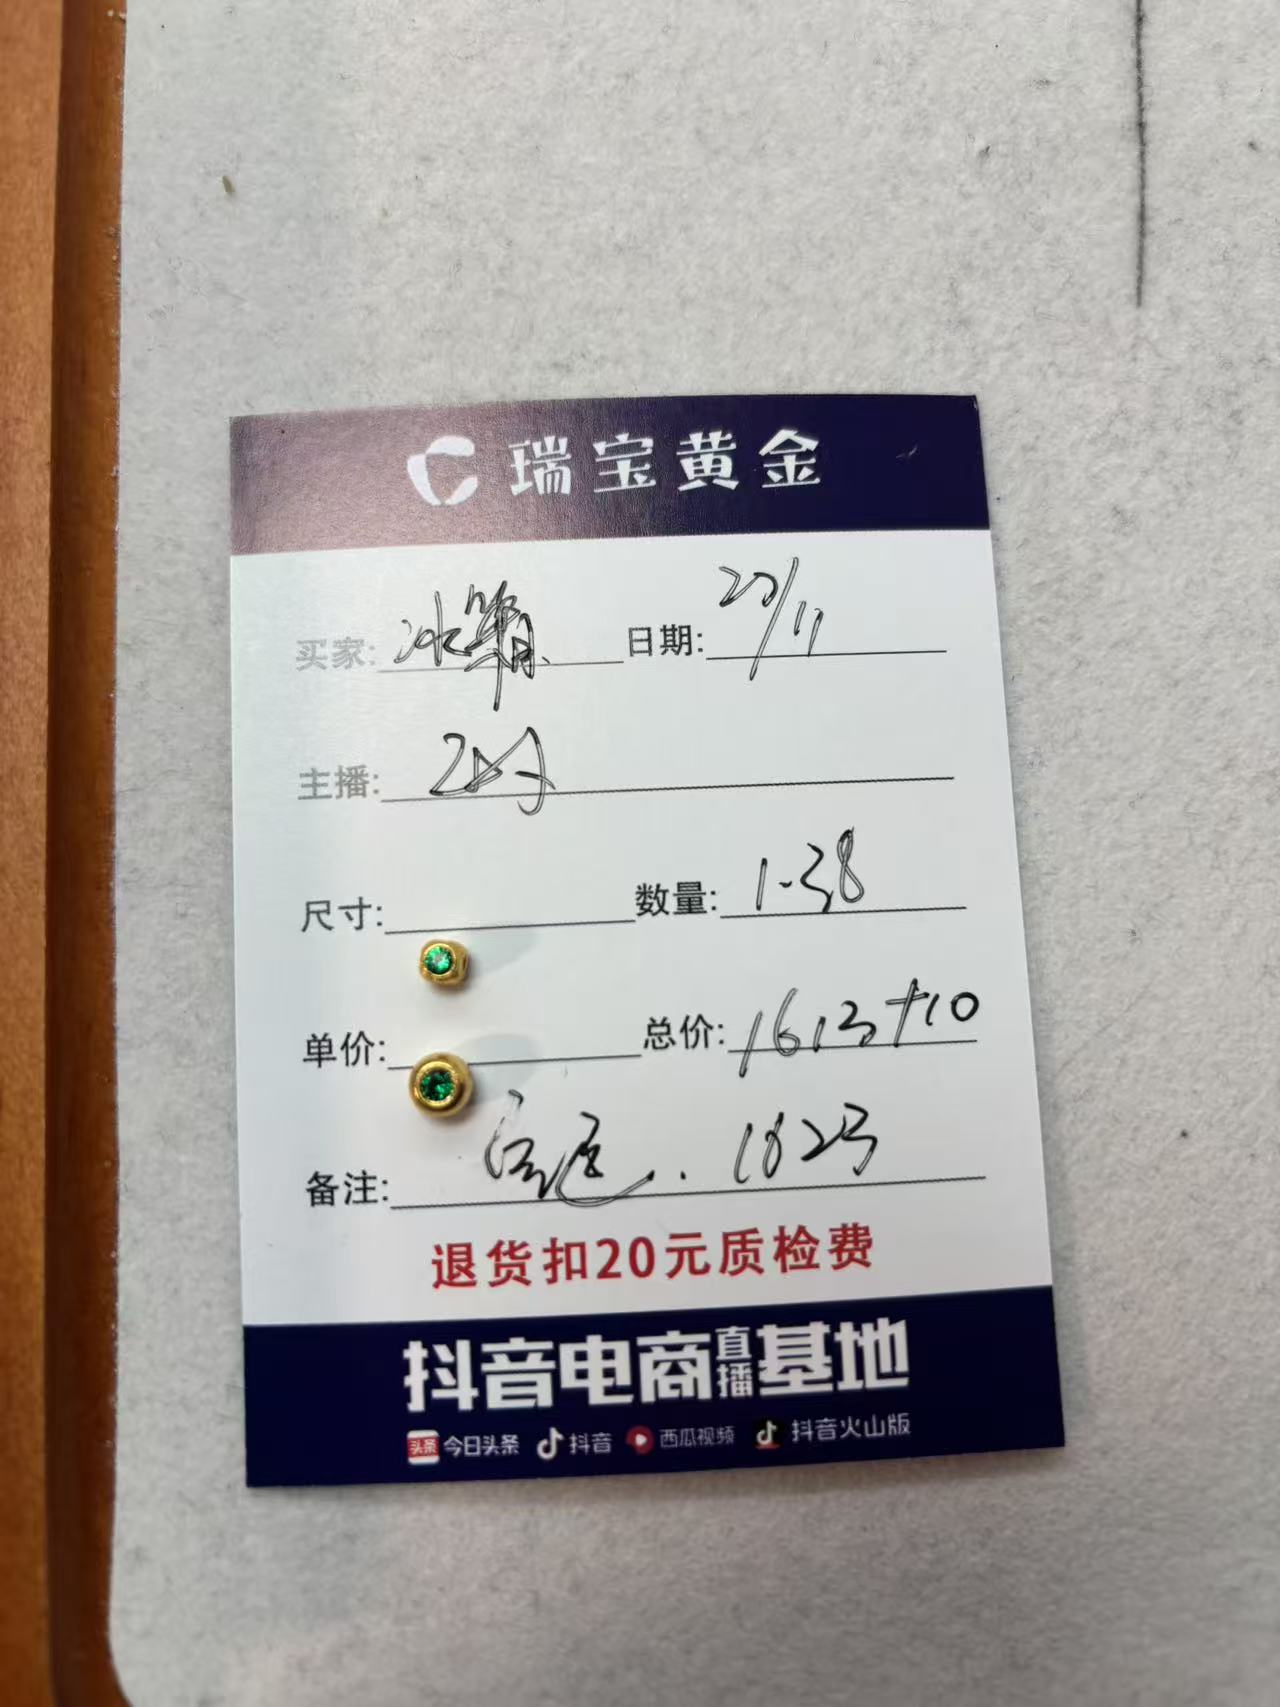 瑞宝黄金
买家: 冰箱 日期: 20/11
主播:
尺寸: 数量: 1.38
单价: 总价: 1613+10
备注: 1623
退货扣20元质检费
抖音电商直播基地
头条 今日头条 抖音 西瓜视频 抖音火山版